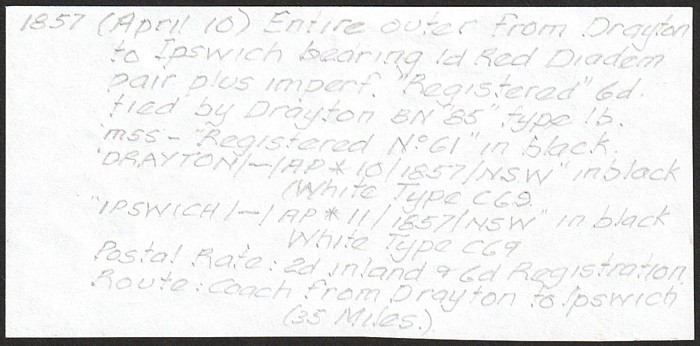 1857 (April 10) Entire outer from Drayton
to Ipswich bearing 1d Red Diadem
pair plus imperf. "Registered" 6d.
tied by Drayton BN "85" type 1b.
mss - "Registered No 61" in black.
"DRAYTON/-/AP * 10/1857/NSW" in black
(White Type C69.
"IPSWICH/-/AP * 11/1857/NSW" in black
White Type C69
Postal Rate: 2d inland & 6d Registration
Route: Coach from Drayton to Ipswich
(35 Miles.)